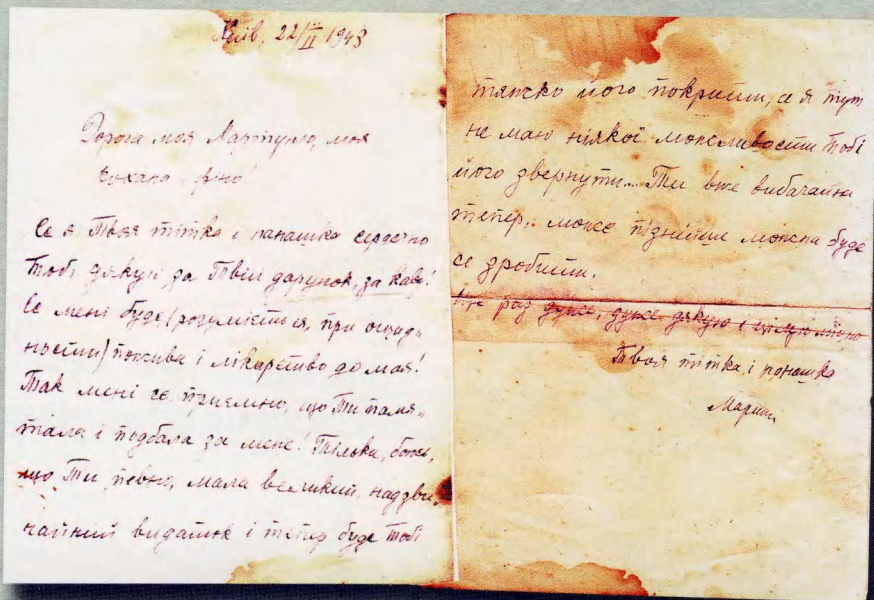 Київ, 22/II 1943
Дорога моя Мартуню, моя
кохана
Се я Твоя тітка і панашка сердечно
Тобі дякую за Твій дарунок, за каву!
Се мені буде (розуміється, при ощад-
ности) пожива і лікарство до мая!
Так мені се приємно, що Ти памя-
тала і подбала за мене! Тільки, боюсь,
що Ти, певно, мала великий, надзви-
чайний видаток і тепер буде Тобі
тяжко його покрити, а я тут
не маю ніякої можливости Тобі
його звернути... Ти вже вибачай
тепер, може пізнійше можна буде
се зробити.
Ще раз дуже, дуже дякую і цілую
Твоя тітка і панашка